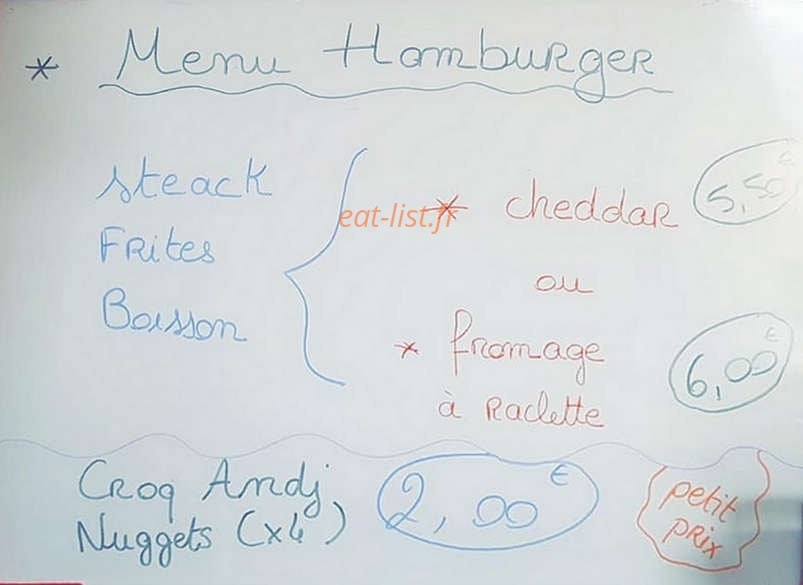 * Menu Hamburger
steack
Frites
Boisson
eat-list.fr
* cheddar 5,50 €
ou
* fromage
à Raclette 6,00 €
Croq Andj
Nuggets (x4) 2,00 €
petit
prix